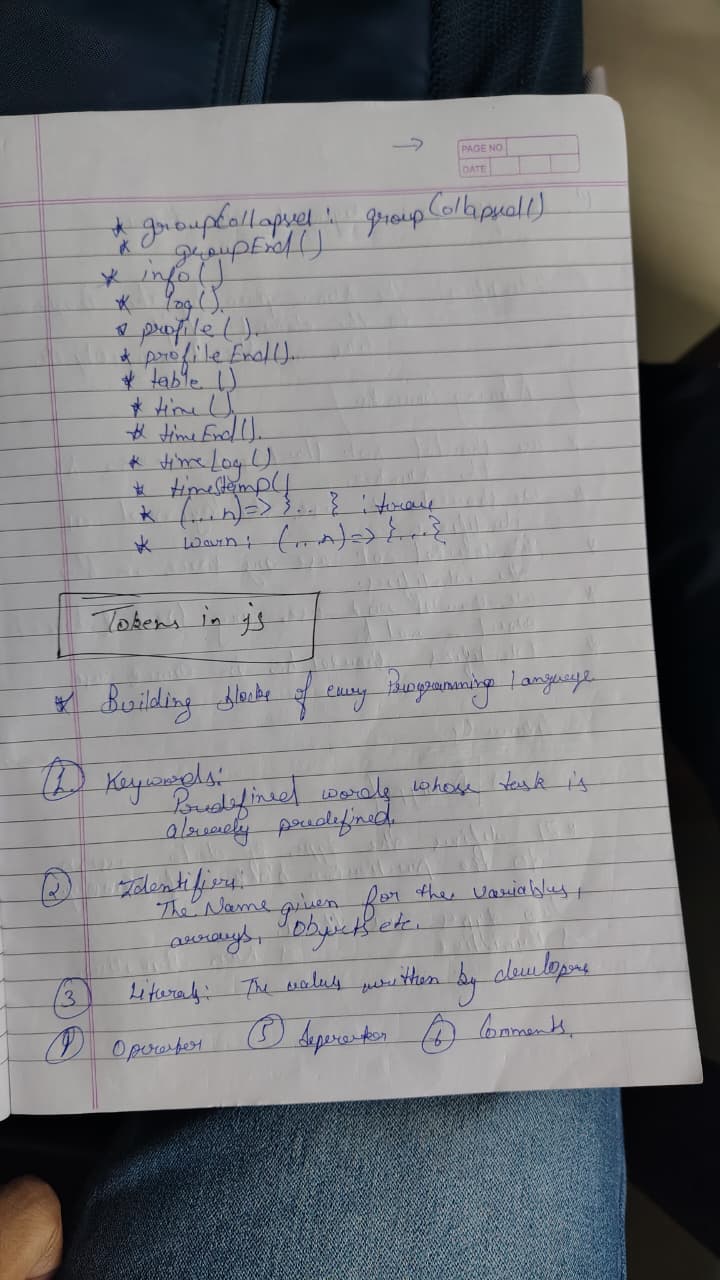 →
PAGE NO
DATE
* groupCollapsed : groupCollapsed()
* groupEnd()
* info()
* log().
* profile().
* profileEnd().
* table()
* time().
* timeEnd().
* timeLog()
* timeStamp()
* (...n)=> }... } : trace
* warn : (...n)=> {...}
Tokens in js
* Building blocks of every Programming language
1. Keywords:
Predefined words whose task is
already predefined.
2 Identifiers:
The Name given for the variables,
arrays, Objects etc.
3 Literals: The values written by developers
4 Operator 5 Seperator 6 Comments.